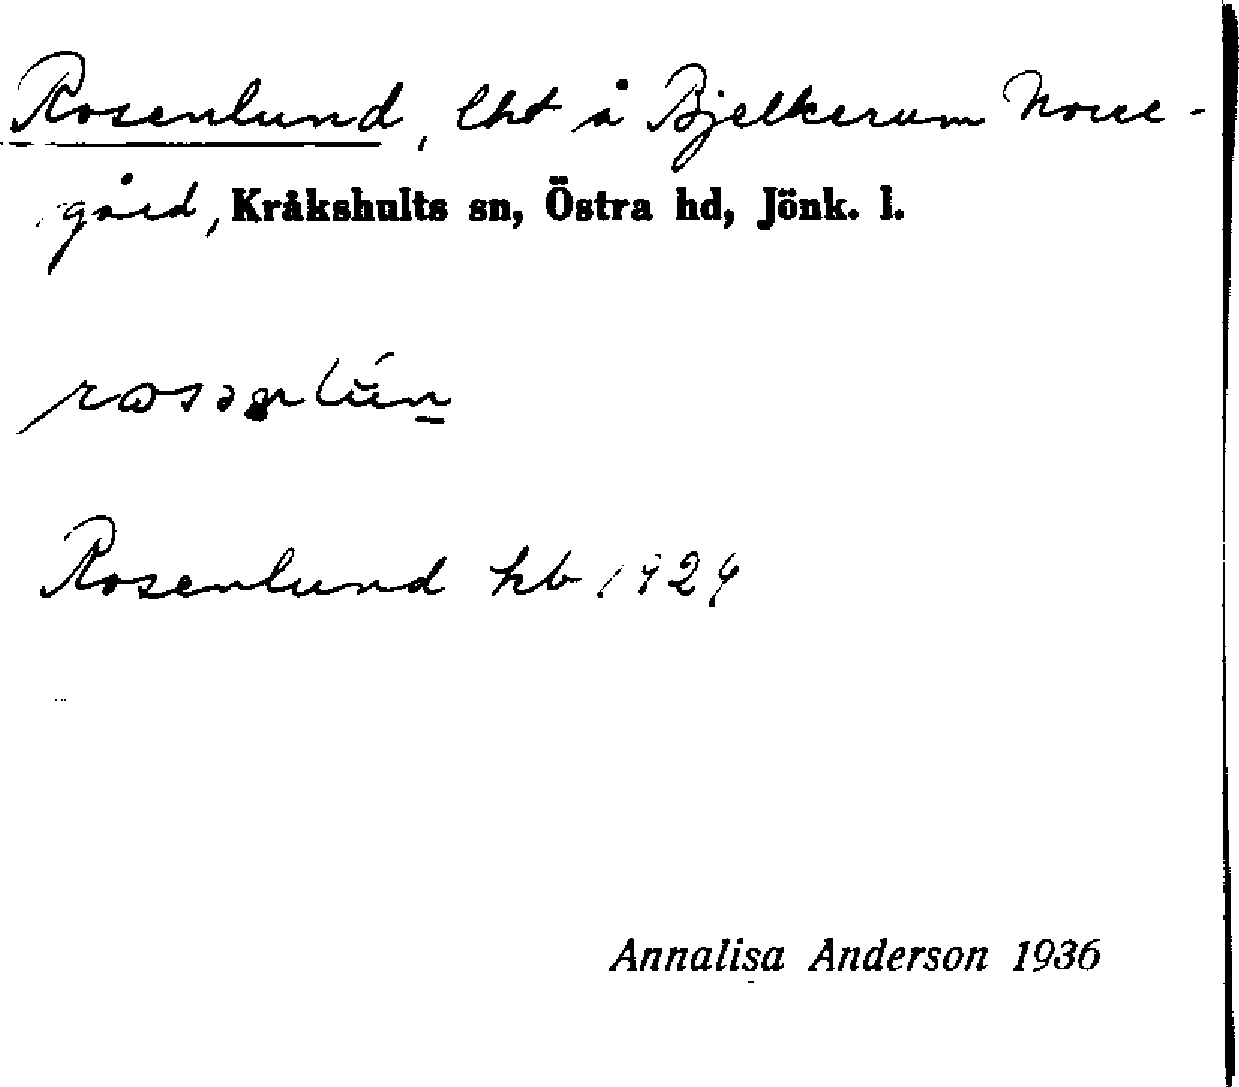 Rosenlund, lht å Bjelkerum Norre-
gård, Kråkshults sn, Östra hd, Jönk. l.
Rosenlund hb 1929
Annalisa Anderson 1936